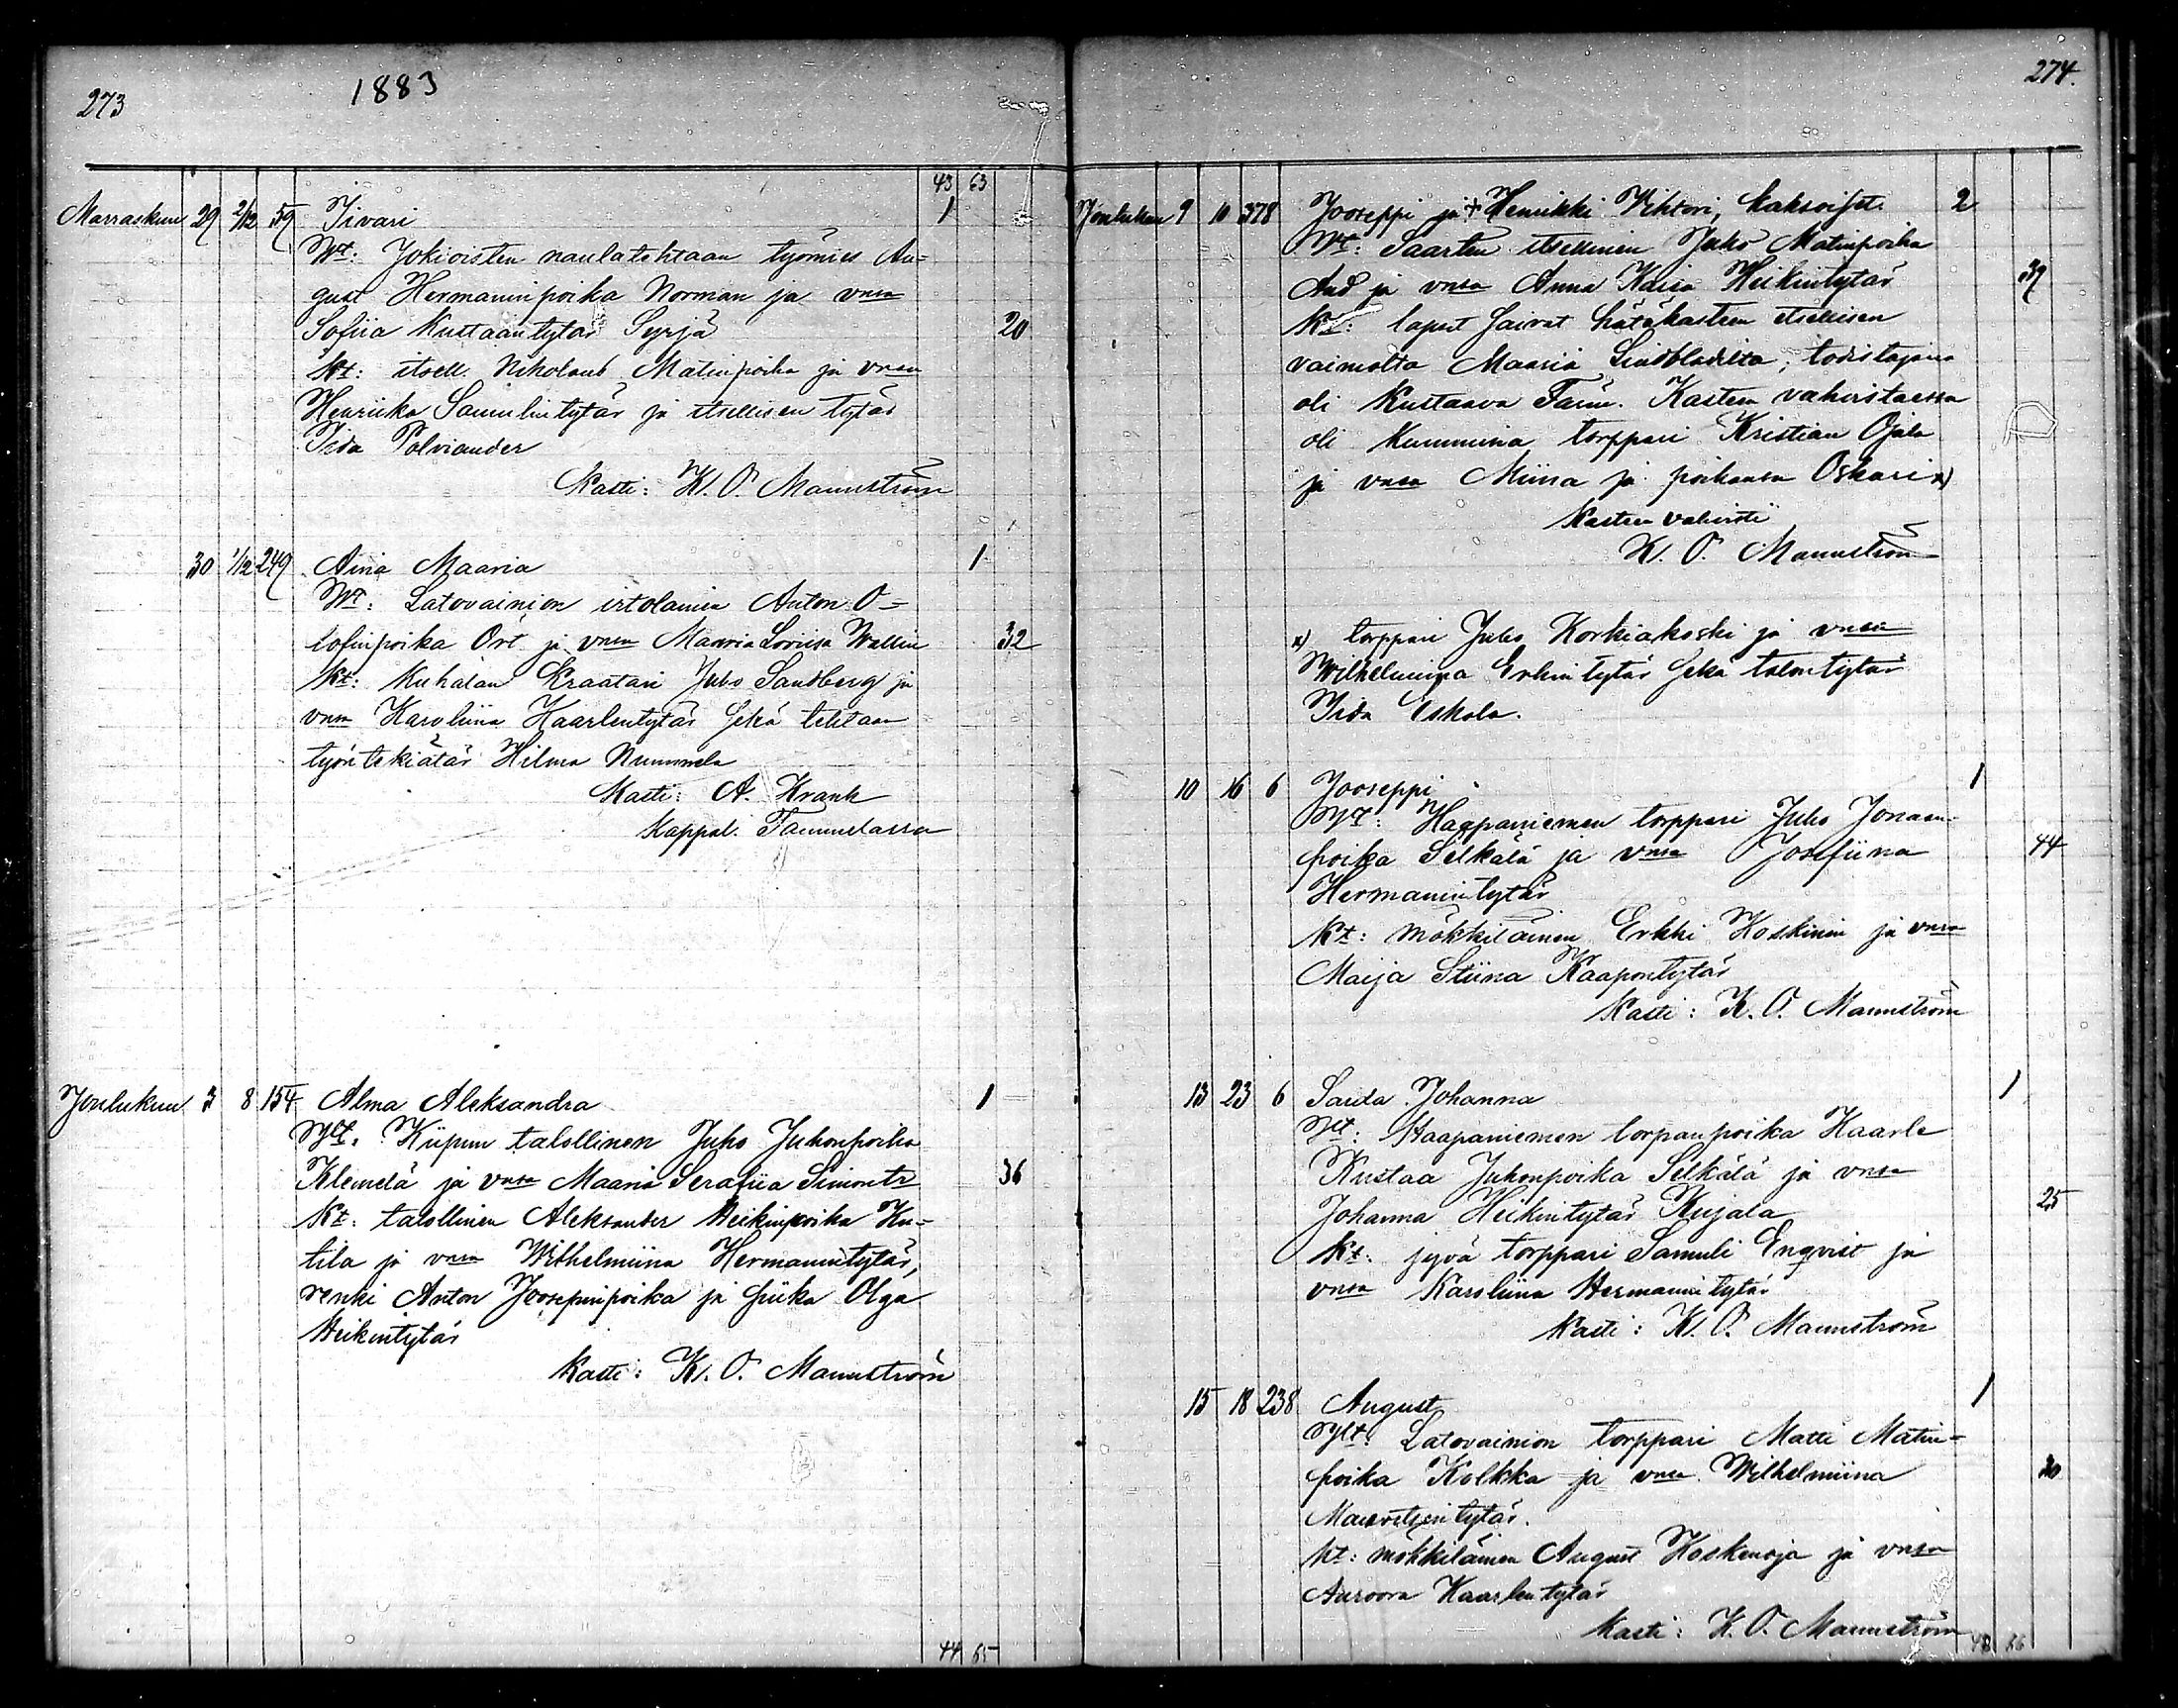 273
1883
43 63
Marraskuu 29 2/12 59 Iivari 1
Wt: Jokioisten naulatehtaan työmies Au=
gust Hermaninpoika Norman ja vnsa
Sofiia Kustaantytär Syrjä 20
Kt: itsell. Nikolaus Matinpoika ja vnsa
Henriika Samulintytär ja itsellisen tytär
Iida Palviander
Kasti: K. O. Mannström
30 1/12 249 Aina Maaria 1
Wt: Latovainion irtolainen Anton O=
lofinpoika Ört ja vnsa Maaria Loviisa Wallin 32
Kt: Kuhalan kraatari Juho Sandberg ja
vnsa Karoliina Kaarlentytär sekä tehtaan
työntekiätär Hilma Nummela
Kasti: A. Krank
Kappal. Tammelassa
Joulukuu 3 8 154 Alma Aleksandra 1
Wt: Kiipun talollinen Juho Juhonpoika
Klemelä ja vnsa Maaria Serafiia Simontr 36
Kt: talollinen Aleksander Heikinpoika Ku=
tila ja vnsa Wilhelmiina Hermanintytär,
renki Anton Joosepinpoika ja piika Olga
Heikintytär
Kasti: K. O. Mannström
44 65
274.
Joulukuu 9 10 378 Jooseppi ja + Henrikki Vihtori, kaksoiset. 2
Wt: Saarten itsellinen Juho Matinpoika
ja vnsa Anna Kaisa Heikintytär 39
Kt: lapset saivat hätäkasteen itsellisen
vaimolta Maaria Lindbladilta; todistajana
oli Kustaava Faim. Kasteen vahvistaessa
oli kummina torppari Kristian Ojala
ja vnsa Miina ja poikansa Oskari x)
Kasteen vahvisti
K. O. Mannström
x) torppari Juho Korkiakoski ja vnsa
Wilhelmiina Erkintytär sekä talontytär
Iida Eskola.
10 16 6 Jooseppi 1
Wt: Haapaniemen torppari Juho Jonaan-
poika Sillkälä ja vnsa Josefiina 44
Hermanintytär
Kt: mökkiläinen Erkki Koskinen ja vnsa
Maija Stiina Kaapontytär
Kasti: K. O. Mannström
13 23 6 Saida Johanna 1
Wt: Haapaniemen torpanpoika Kaarle
Kustaa Juhonpoika Selkälä ja vnsa
Johanna Heikintytär Kujala 25
Kt: jyvä torppari Samuli Enqvist ja
vnsa Karoliina Hermanintytär
Kasti: K. O. Mannström
15 18 238 August 1
Wt: Latovainion torppari Matti Matin=
poika Kolkka ja vnsa Wilhelmiina 30
Mauritsintytär.
Kt: mökkiläinen August Koskenoja ja vnsa
Auroora Kaarlentytär
Kasti: K. O. Mannström
48 66